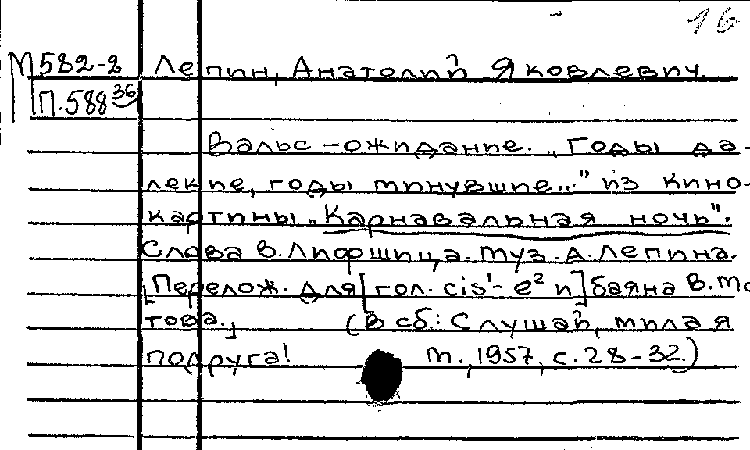 16
М582-2 Лепин, Анатолий Яковлевич.
П.588 36
Вальс-ожидание. „Годы да-
лекие, годы минувшие..." из кино-
картины „Карнавальная ночь".
Слова В. Лифшица. Муз. А. Лепина.
[Перелож. для [гол. cis¹- e² и] баяна В. Мо
това.] (В сб.: Слушай, милая
подруга! М., 1957, с. 28-32.)